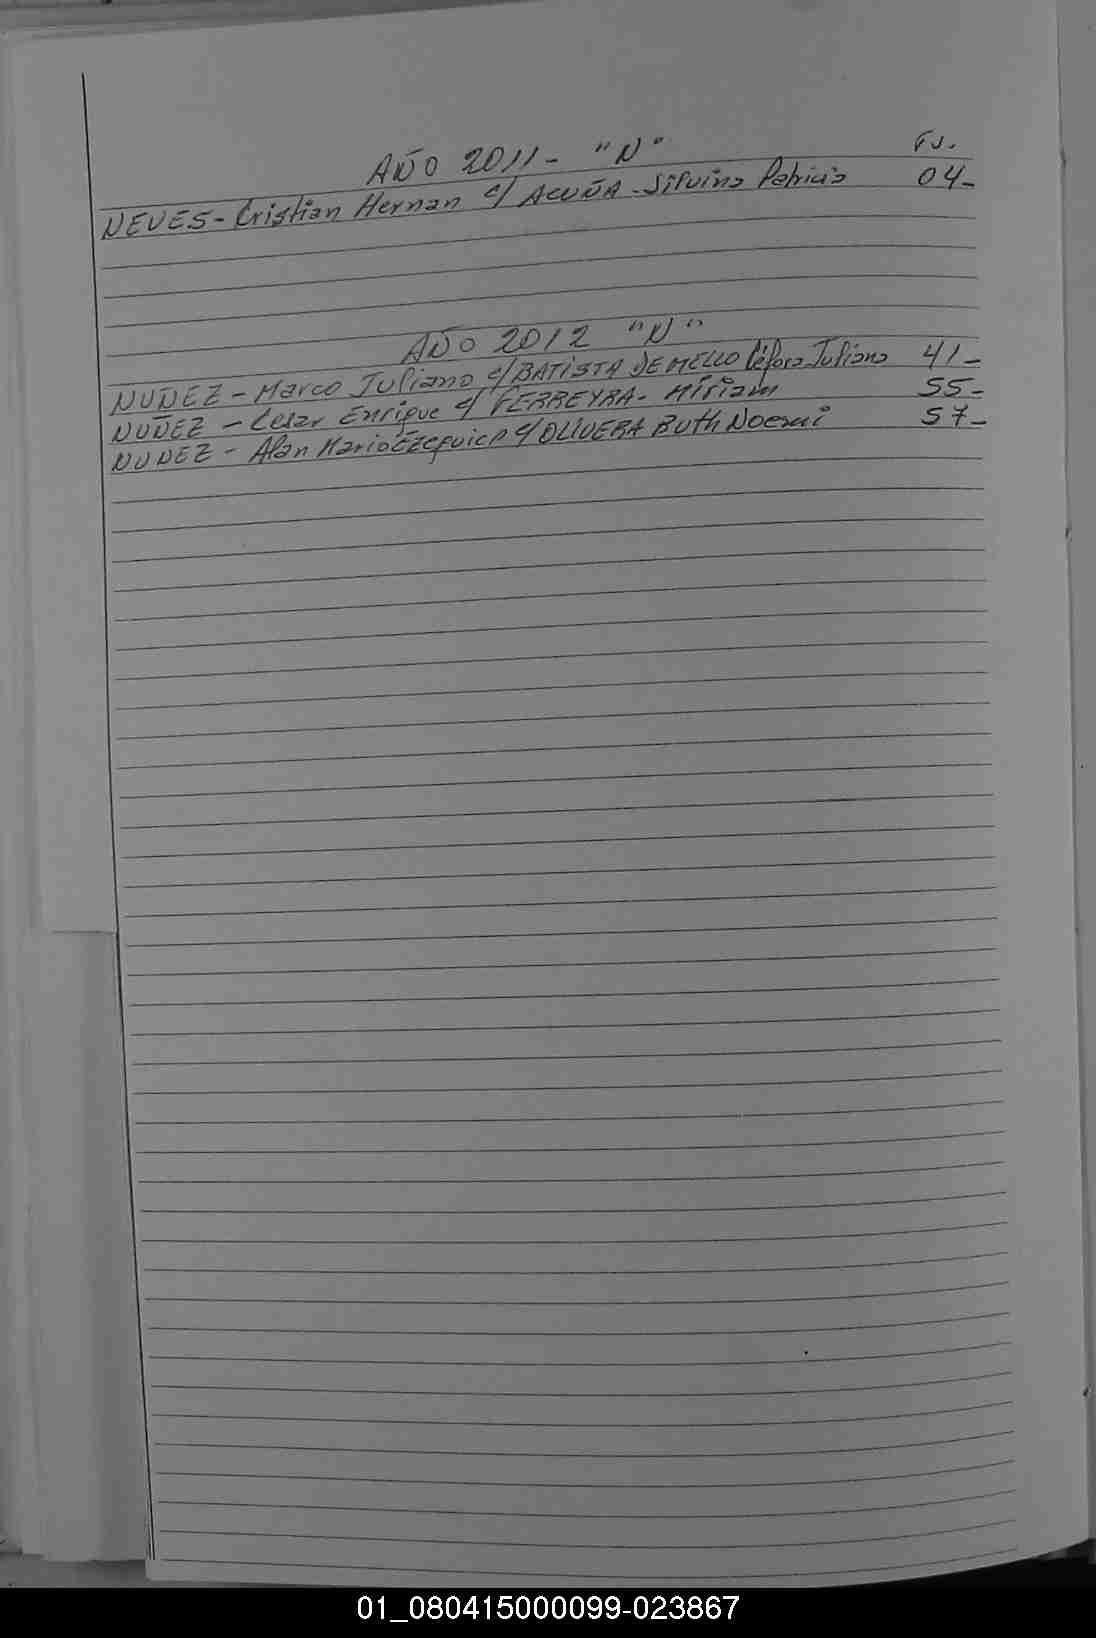 AÑO 2011- "N" FJ.
NEVES- Cristian Hernan c/ ACUÑA - Silvina Patricia 04-
AÑO 2012 "N"
NUÑEZ - Marco Juliano c/ BATISTA DE MELLO Céfora Juliana 41-
NUÑEZ - Cesar Enrique c/ FERREYRA- Miriam 55-
NUNEZ - Alan Mario Ezequiel c/ OLIVERA Ruth Noemi 57-
01_080415000099-023867